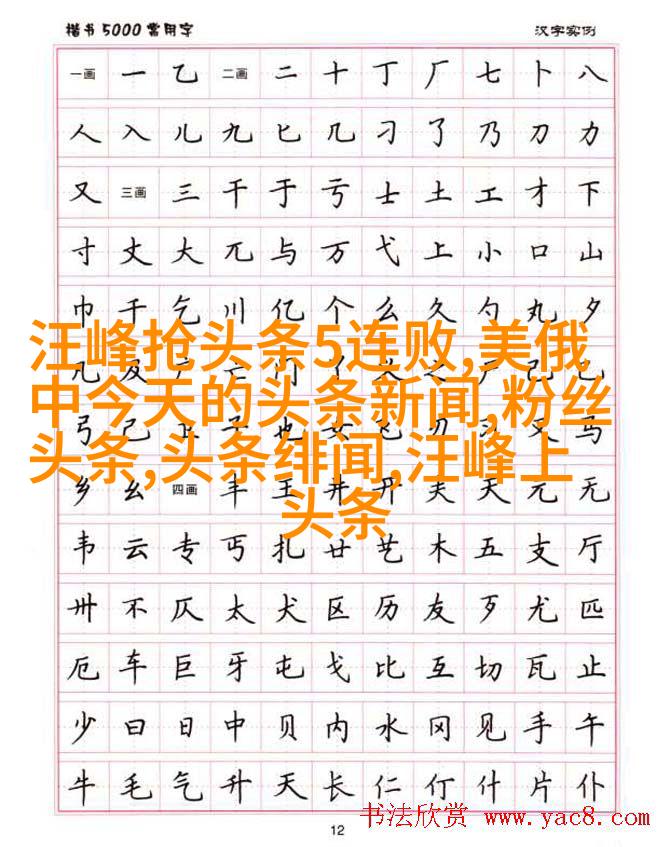 楷书5000常用字 汉字实例
一画 一 乙 二画 二 十 丁 厂 七 卜 八
人 入 儿 九 匕 几 刁 了 乃 刀 力
又 三画 三 干 于 亏 士 土 工 才 下
寸 丈 大 兀 与 万 弋 上 小 口 山
巾 千 乞 川 亿 个 么 久 勺 丸 夕
汪峰抢头条5连败,美俄
中今天的头条新闻,粉丝
头条,头条绯闻,汪峰上
头条
弓 己 卫 子 也 女 飞 刃 习 叉 马
乡 幺 四画 丰 王 井 开 夫 天 元 无
韦 云 专 丐 扎 廿 艺 木 五 支 厅
卅 不 仄 太 犬 区 历 友 歹 尤 匹
厄 车 巨 牙 屯 戈 比 互 切 瓦 止
少 曰 日 中 贝 内 水 冈 见 手 午
牛 毛 气 升 夭 长 仁 仃 什 片 仆
书法欣赏 www.yac8.com
12